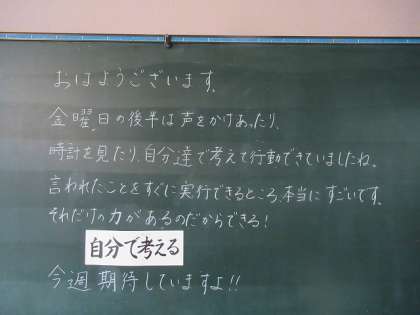 おはようございます。
金曜日の後半は声をかけあったり、
時計を見たり、自分達で考えて行動できていましたね。
言われたことをすぐに実行できるところ、本当にすごいです。
それだけの力があるのだからできる!
自分で考える
今週期待していますよ!!